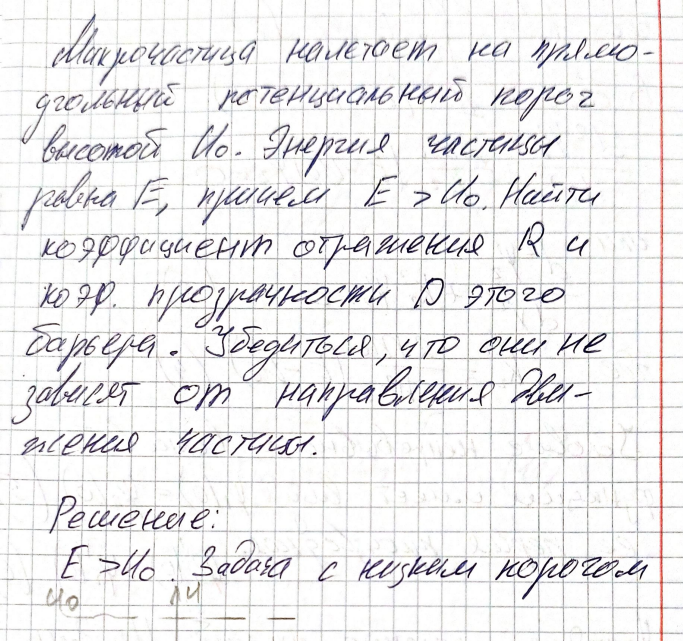 Микрочастица налетает на прямо-
угольный потенциальный порог
высотой U₀. Энергия частицы
равна E, причем E > U₀. Найти
коэффициент отражения R и
коэф. прозрачности D этого
барьера. Убедиться, что они не
зависят от направления дви-
жения частицы.
Решение:
E > U₀. Задача с низким порогом